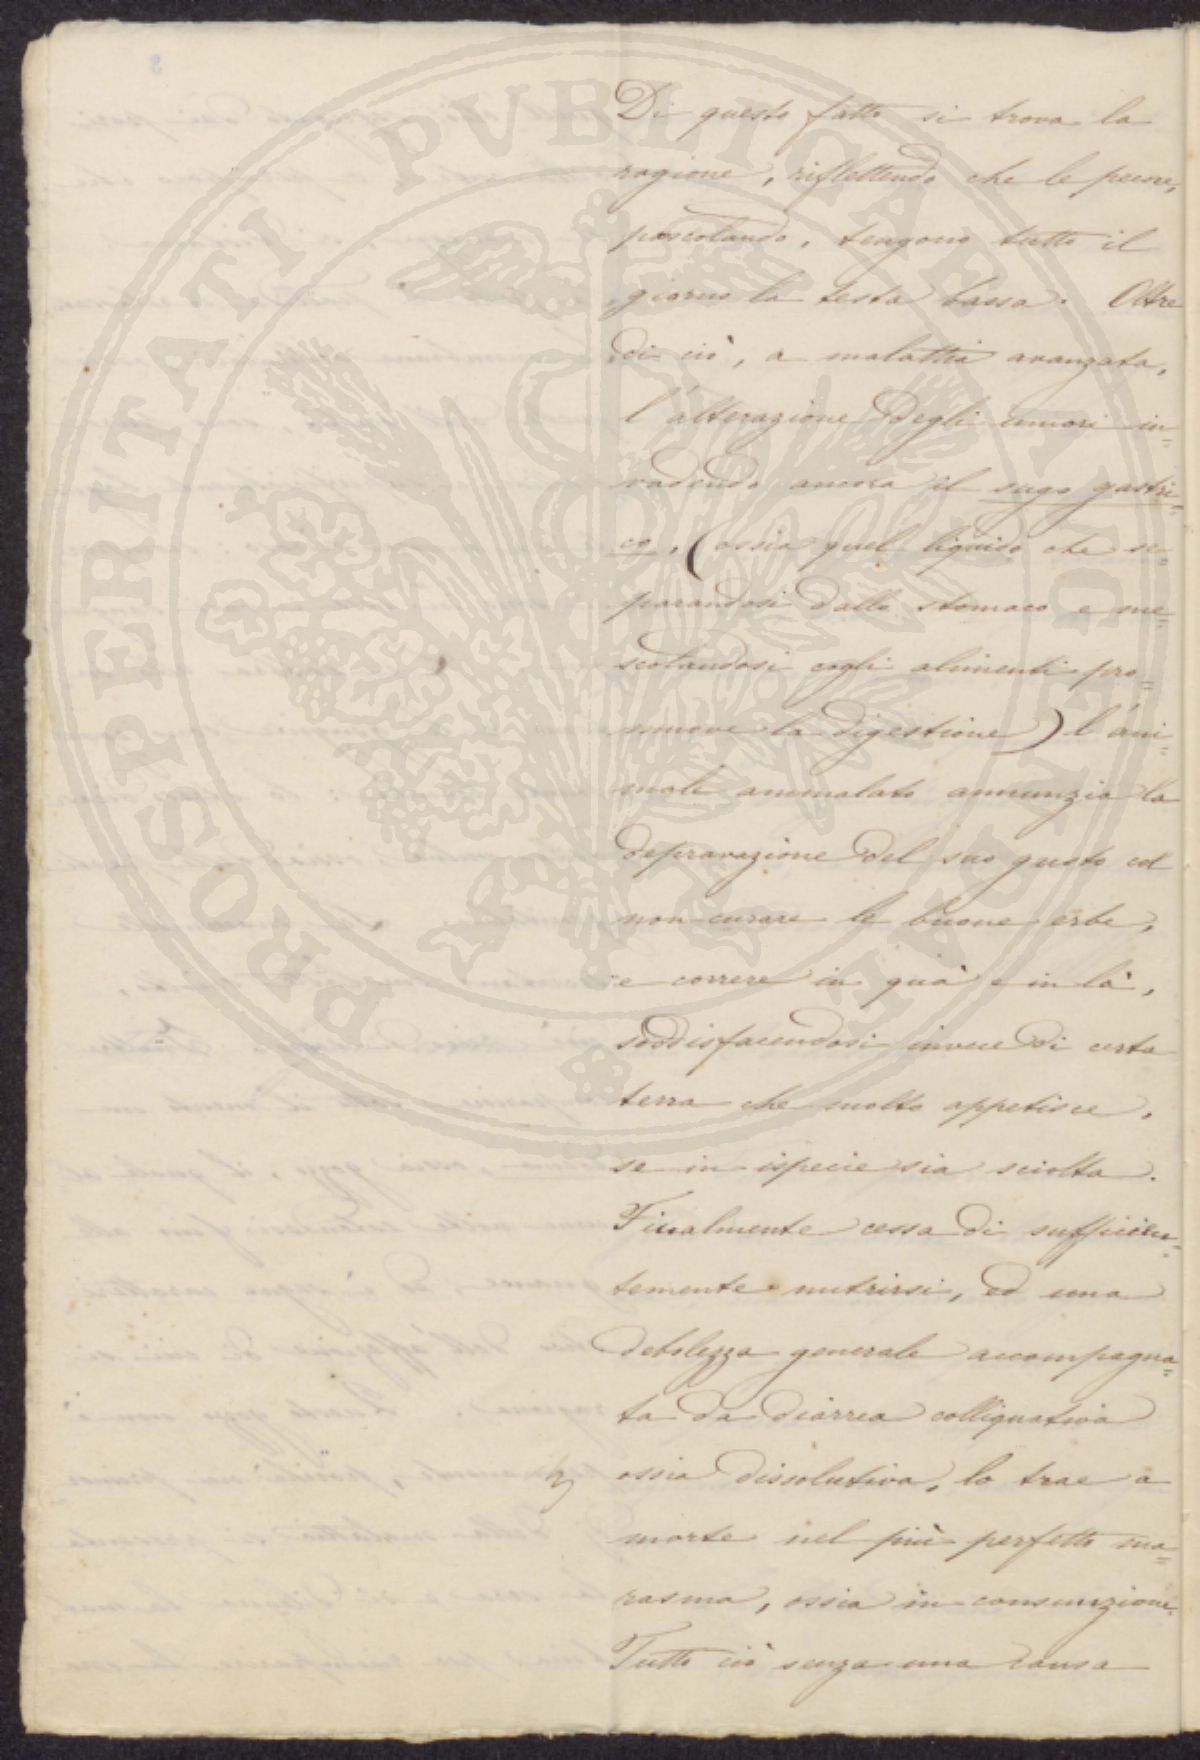 PROSPERITATI PVBLICAE AVGENDAE
Di questo fatto si trova la
ragione, riflettendo che le pecore,
pascolando, tengono tutto il
giorno la testa bassa. Oltre
di ciò, a malattia avanzata,
l'alterazione degli umori in=
vadendo ancora il sugo gastri=
co, (ossia quel liquido che se=
parandosi dallo stomaco e me=
scolandosi cogli alimenti pro=
muove la digestione) l'ani=
male ammalato annunzia la
depravazione del suo gusto col
non curare le buone erbe,
e correre in quà e in là,
soddisfacendosi invece di certa
terra che molto appetisce,
se in ispecie sia sciolta.
Finalmente cessa di sufficien=
temente nutrirsi, ed una
debolezza generale accompagna=
ta da diarrea colliquativa
ossia dissolutiva, lo trae a
morte nel più perfetto ma=
rasma, ossia in consunzione.
Tutto ciò senza una causa